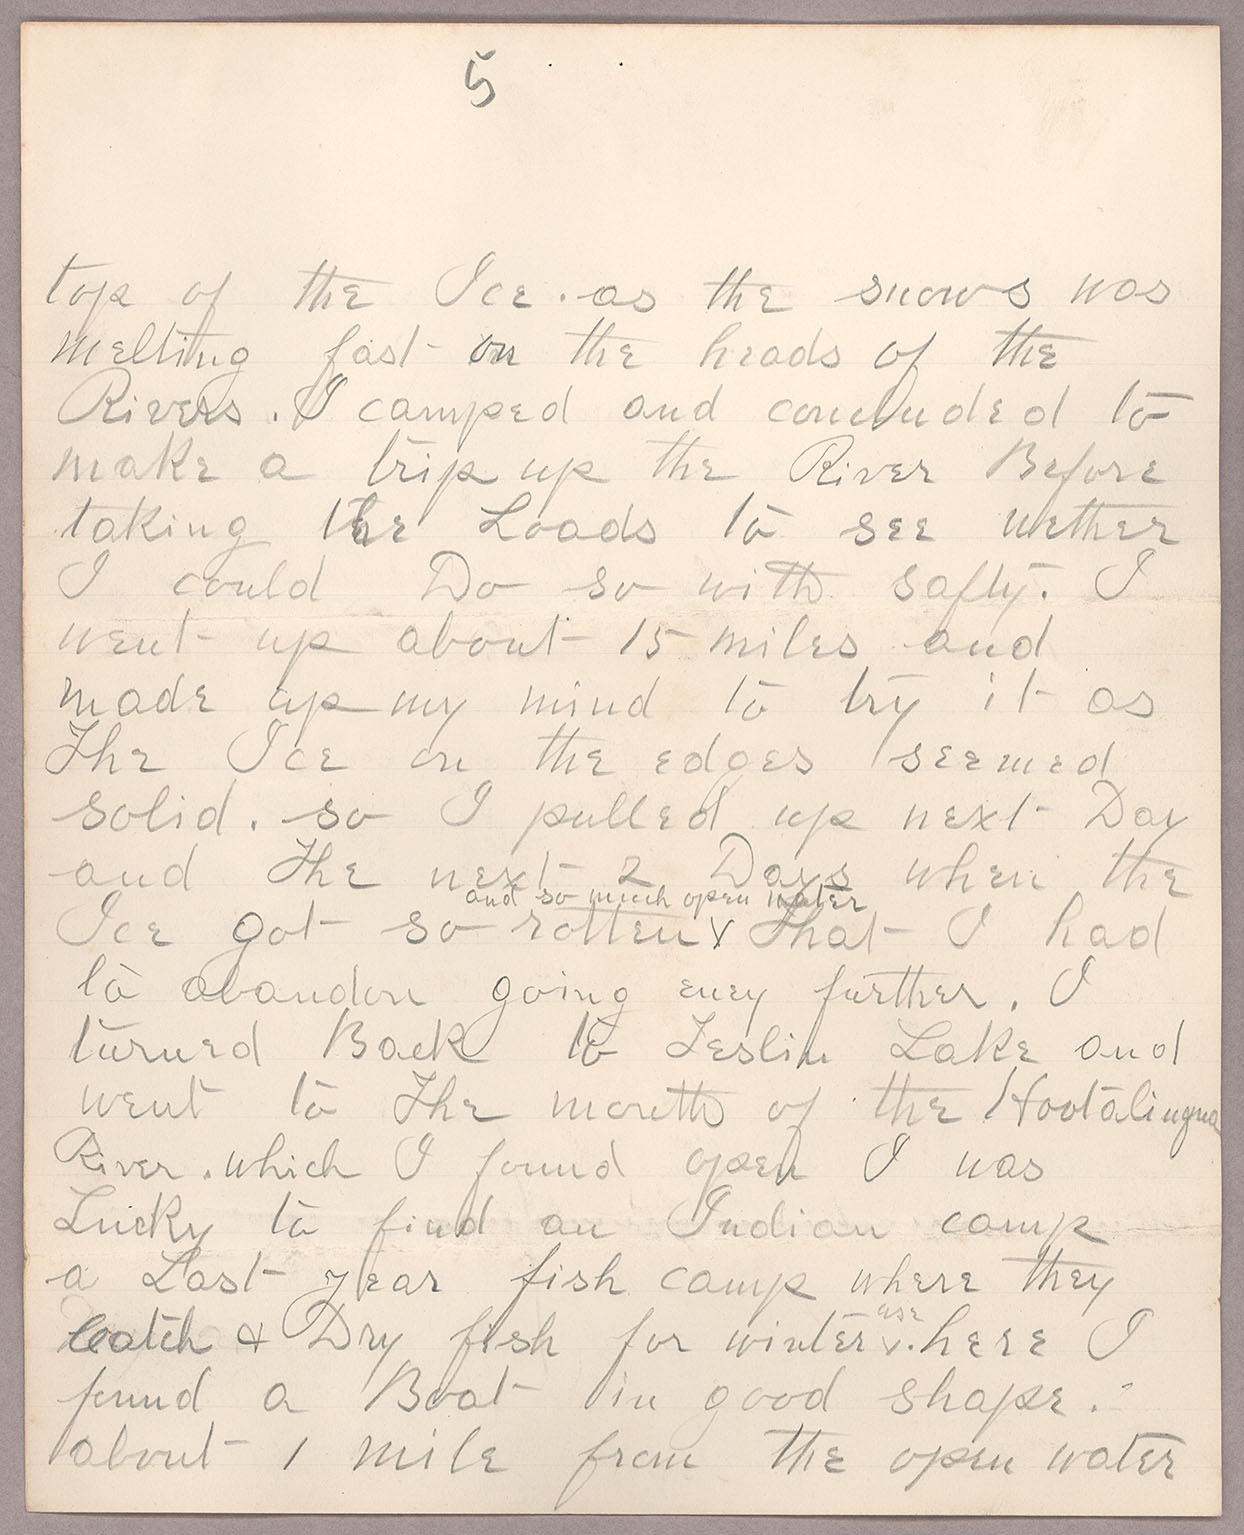 5
top of the Ice. as the snows was
melting fast on the heads of the
Rivers. I camped and concluded to
make a trip up the River Before
taking the Loads to see wether
I could Do so with safty. I
went up about 15 miles and
made up my mind to try it as
The Ice on the edges seemed
solid. so I pulled up next Day
and The next 2 Days when the
and so much open water
Ice got so rotten v That I had
to abandon going eney further. I
turned Back to Teslin Lake and
went to The mouth of the Hootalinqua
River. which I found open I was
Lucky to find an Indian camp
a Last year fish camp where they
use
catch & Dry fish for winter v. here I
found a Boat in good shape.
about 1 mile from the open water